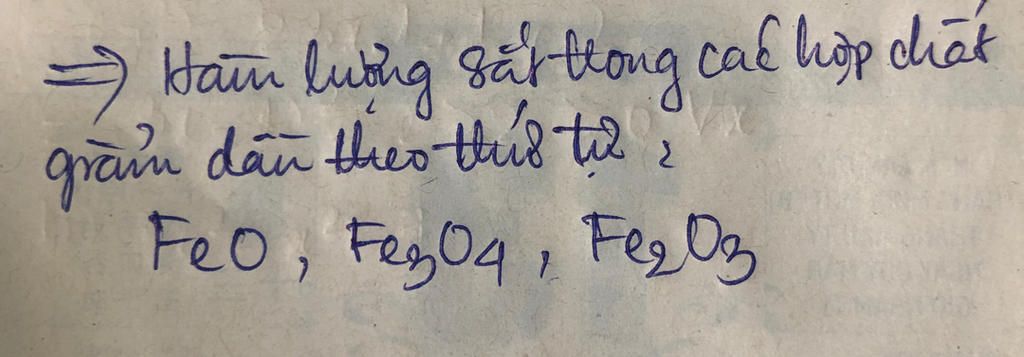 => Hàm lượng sắt trong các hợp chất
giảm dần theo thứ tự :
FeO, Fe3O4, Fe2O3